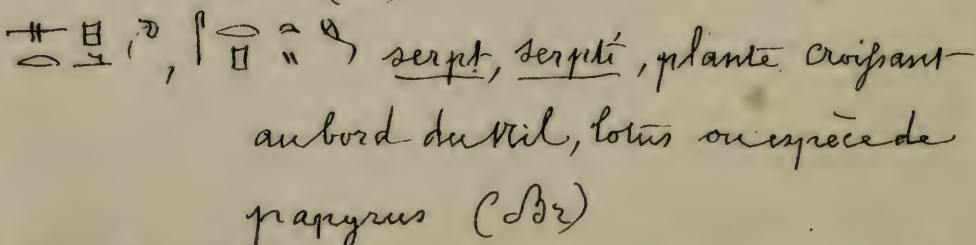 serpt, serpti, plante croissant
au bord du Nil, lotus ou espèce de
papyrus (Br)